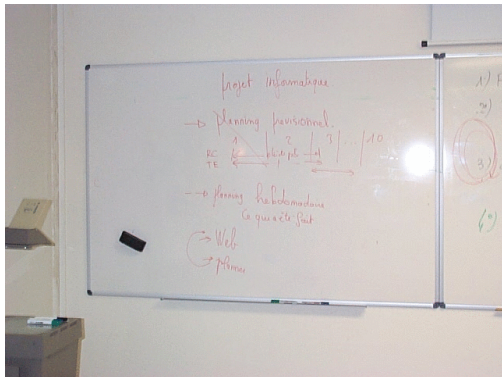 projet informatique
→ planning prévisionnel.
1 2 3 ... 10
RC
TE
→ planning hebdomadaire
Ce qui a été fait
→ Web
→
1)
2)
3)
4)